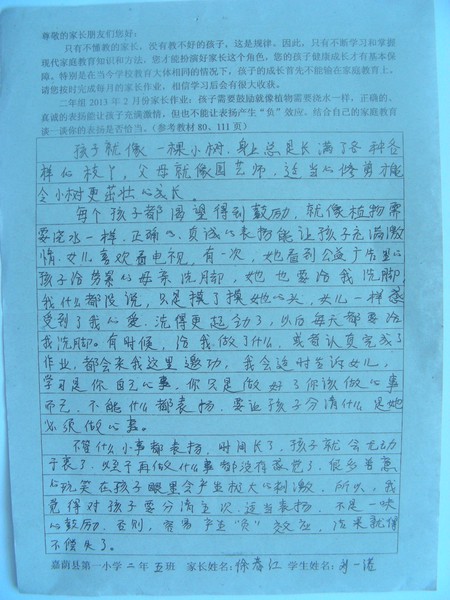 尊敬的家长朋友们您好:
只有不懂教的家长,没有教不好的孩子,这是规律。因此,只有不断学习和掌握
现代家庭教育知识和方法,您才能扮演好家长这个角色。您的孩子健康成长才有基本保
障。特别是在当今学校教育大体相同的情况下,孩子的成长首先不能输在家庭教育上。
请您按时完成每月的家长作业,相信学习后会有很大收获。
二年级2013年2月份家长作业:孩子需要鼓励就像植物需要浇水一样。正确的、
真诚的表扬能让孩子充满激情,但也不能让表扬产生“负”效应。结合自己的家庭教育
谈一谈你的表扬是否恰当。(参考教材80、111页)
孩子就像一棵小树.身上总是长满了各种各
样的枝丫,父母就像园艺师.适当的修剪才能
令小树更茁壮的成长。
每个孩子都渴望得到鼓励,就像植物需
要浇水一样.正确的、真诚的表扬能让孩子充满激
情.女儿喜欢看电视,有一次,她看到公益广告里的
孩子给劳累的母亲洗脚,她也要给我洗脚
我什么都没说,只是摸了摸她的头,女儿一样感
受到了我的爱.洗得更起劲了,以后每天都要给
我洗脚。有时候,给我做了什么,或者认真完成了
作业,都会来我这里邀功,我会适时告诉女儿,
学习是你自己的事,你只是做好了你该做的事
而已.不能什么都表扬.要让孩子分清什么是她
必须做的事。
不管什么小事都表扬.时间长了,孩子就会无动
于衷了.以至于再做什么事都没有意思了.
玩笑在孩子眼里会产生极大的刺激,所以,我
觉得对孩子要分清主次.适当表扬.不是一味
的鼓励.否则,容易产生“负”效应,效果就得
不偿失了。
嘉荫县第一小学二年五班 家长姓名:徐春红 学生姓名: